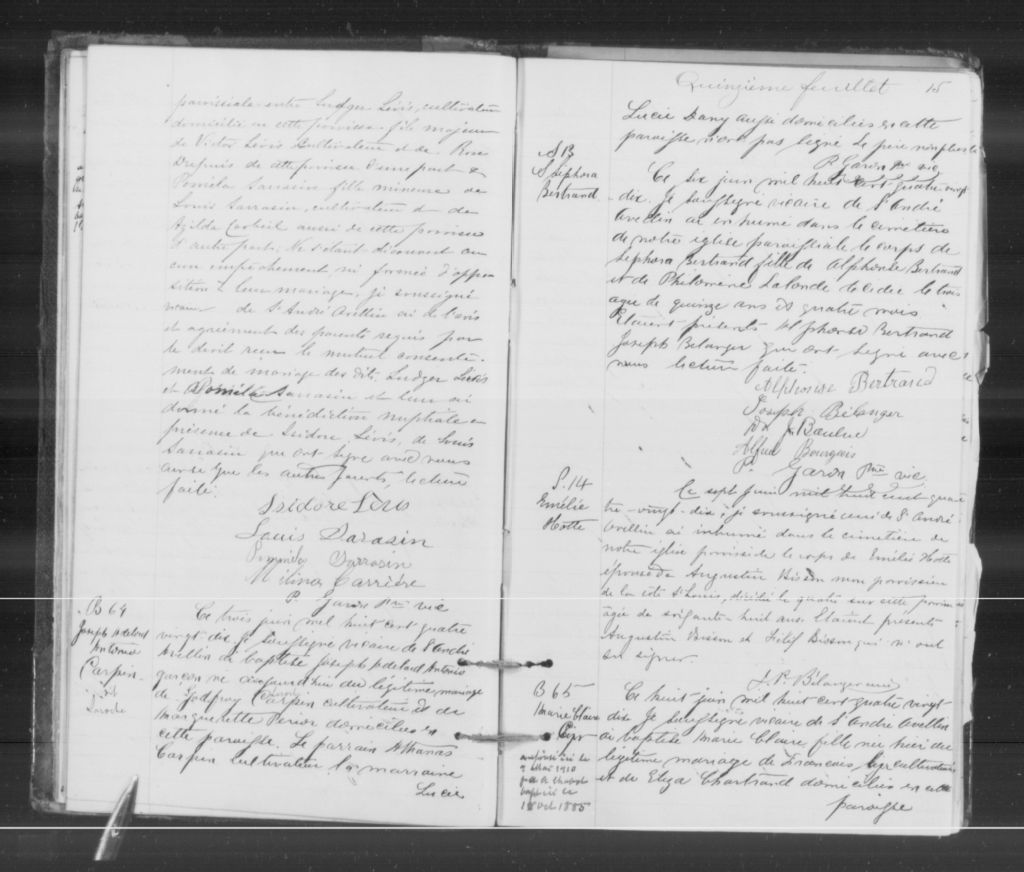 paroissiale entre Ludger Lévis, cultivateur
domicilié en cette paroisse fils majeur
de Victor Lévis Cultivateur et de Rose
Dupuis de cette paroisse d'une part &
Poméla Sarrasin fille mineure de
Louis Sarrasin, cultivateur et de
Azilda aussi de cette paroisse
d'autre part. Ne s'étant découvert au
cun empêchement ni formé d'oppo
sition à leur mariage, je soussigné
vicaire de St André Avellin ai de l'avis
et agrément des parents requis par
le droit reçu le mutuel consente-
ment de mariage des dits Ludger Lévis
et Poméla Sarrasin et leur ai
donné la bénédiction nuptiale en
présence de Isidore Lévis, de Louis
Sarrasin qui ont signé avec nous
ainsi que les autres parents, lecture
faite.
Isidore Lévis
Louis Sarasin
Sarrasin
Carrière
P. Garon Ptre vic
B 64
Joseph Adelard
Antonio
Carpin
dit
Laroche
Ce trois juin mil huit cent quatre
vingt-dix je soussigné vicaire de St André
Avellin ai baptisé Joseph Adelard Antonio
garçon né aujourd'hui du légitime mariage
de Godfroy Carpin cultivateur et de
Marguerite Perior domiciliés en
cette paroisse. Le parrain Athanas
Carpin Cultivateur la marraine
Lucie
Quinzième feuillet 15
Lucie Dany aussi domiciliés en cette
paroisse n'ont pas signé Le père
P. Garon Ptre vic
S 13
Séphora
Bertrand
Ce six juin mil huit cent quatre vingt
-dix. Je soussigné vicaire de St André
Avellin ai inhumé dans le cemetière
de notre église paroissiale le corps de
Sephora Bertrand fille de Alphonse Bertrand
et de Philomène Lalonde décédée le trois
agée de quinze ans et quatre mois
Etaient présents Alphonse Bertrand
Joseph Belanger qui ont signé avec
nous lecture faite.
Alphonse Bertrand
Joseph Bélanger
J. Beaulne
Alfred Bourgeois
P. Garon Ptre vic
S. 14
Emélie
Hotte
Ce sept juin mil huit cent qua
tre-vingt-dix, je soussigné curé de St André
Avellin ai inhumé dans le cimetière de
notre église paroissiale le corps de Emélie Hotte
épouse de Augustin Bisson mon paroissien
de la côte St Louis, décédée le quatre sur cette paroisse
âgée de soixante huit ans. Etaient présents
Augustin Bisson et Bisson qui n'ont
su signer.
J. P. Bélanger curé
B 65
Marie Claire
Cyr
9 Mai 1910
baptisé le
18 Oct 1885
Ce huit juin mil huit cent quatre vingt
dix Je soussigné vicaire de St André Avellin
ai baptisé Marie Claire, fille née hier du
légitime mariage de Francois Cyr cultivateur
et de Eliza Chartrand domiciliés en cette
paroisse